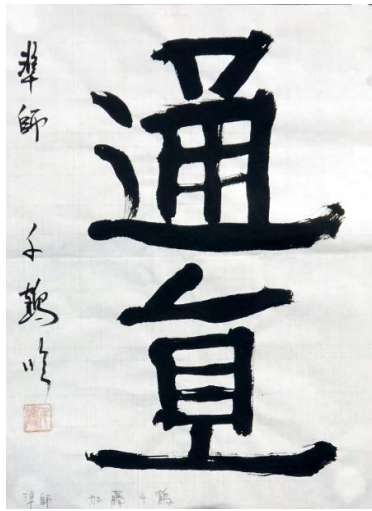 通直
準師 千鶴臨
準師 加藤千鶴